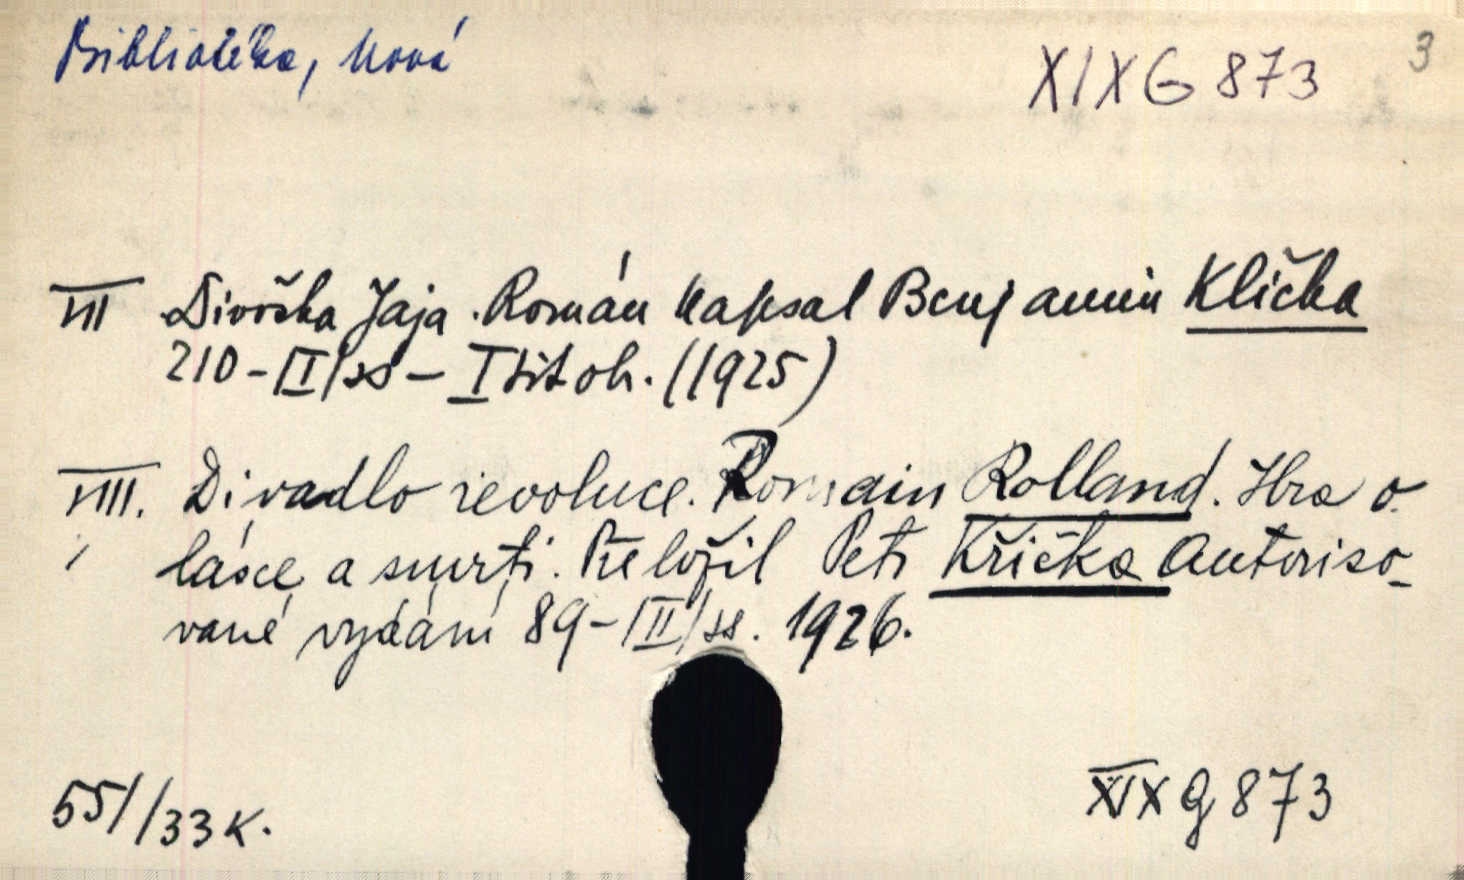 Bibliotéka, Nová
XIX G 873
3
VII Divoška Jaja. Román napsal Benjamin Klička
210-[II]ss - I tit ob. (1925)
VIII. Divadlo revoluce. Romain Rolland. Hra o
lásce a smrti. Přeložil Petr Křička Autoriso-
vané vydání 89-[II]ss. 1926.
55//33 K.
XIX G 873